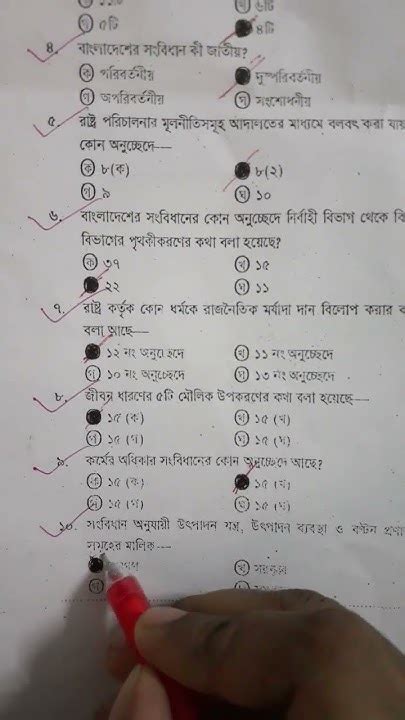 গ ৫টি ৪টি
৪. বাংলাদেশের সংবিধান কী জাতীয়?
ক পরিবর্তনীয় দুস্পরিবর্তনীয়
গ অপরিবর্তনীয় ঘ সংশোধনীয়
৫. রাষ্ট্র পরিচালনার মূলনীতিসমূহ আদালতের মাধ্যমে বলবৎ করা যায়
কোন অনুচ্ছেদে—
ক ৮(ক) ৮(২)
গ ৯ ঘ ১০
৬. বাংলাদেশের সংবিধানের কোন অনুচ্ছেদে নির্বাহী বিভাগ থেকে
বিভাগের পৃথকীকরণের কথা বলা হয়েছে?
ক ৩৭ খ ১৫
২২ ঘ ১১
৭. রাষ্ট্র কর্তৃক কোন ধর্মকে রাজনৈতিক মর্যাদা দান বিলোপ করার
বলা আছে—
১২ নং অনুচ্ছেদে খ ১১ নং অনুচ্ছেদে
গ ১০ নং অনুচ্ছেদে ঘ ১৩ নং অনুচ্ছেদে
৮. জীবন ধারণের ৫টি মৌলিক উপকরণের কথা বলা হয়েছে—
১৫ (ক) খ ১৫ (খ)
গ ১৫ (গ) ঘ ১৫ (ঘ)
৯. কর্মের অধিকার সংবিধানের কোন অনুচ্ছেদে আছে?
ক ১৫ (ক) ১৫ (খ)
গ ১৫ (গ) ঘ ১৫ (ঘ)
১০. সংবিধান অনুযায়ী উৎপাদন যন্ত্র, উৎপাদন ব্যবস্থা ও বণ্টন
সমূহের মালিক—
খ সরকার